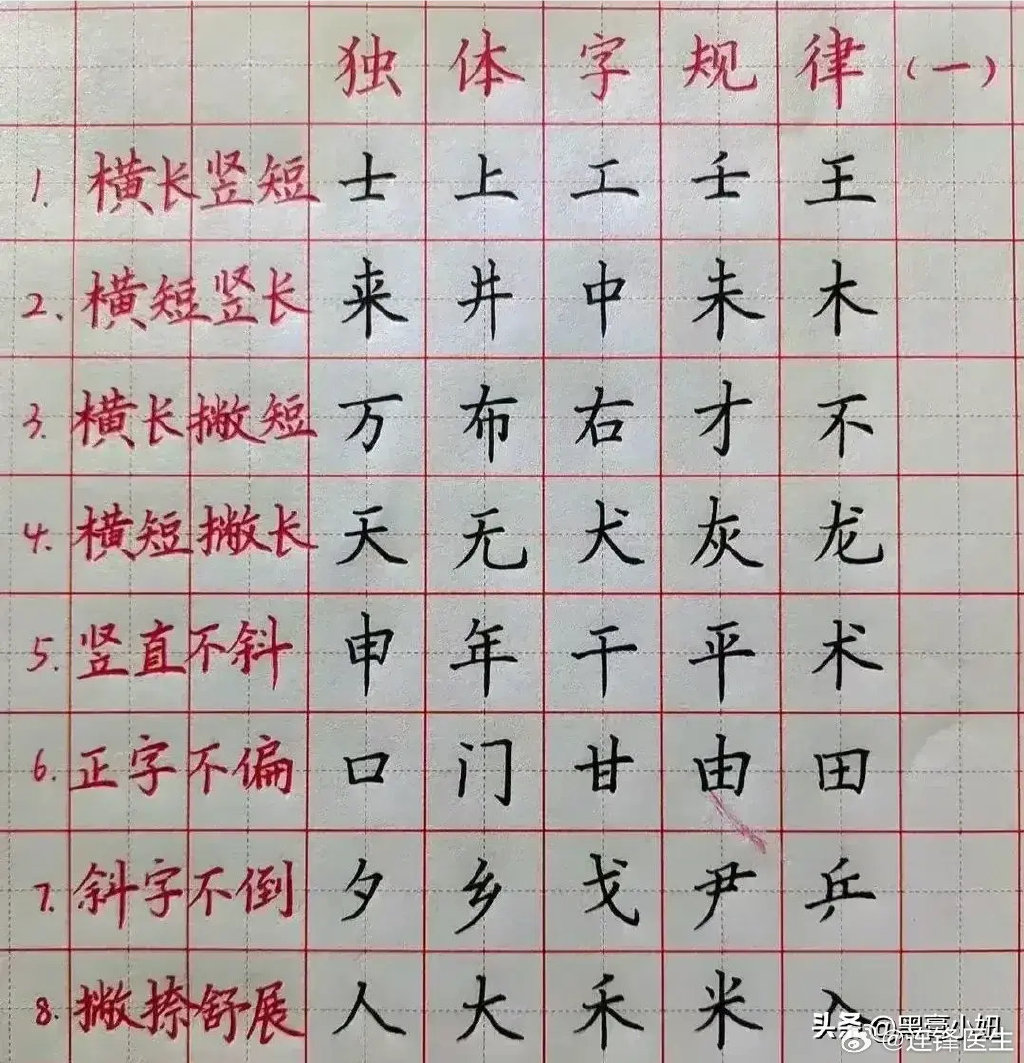 独体字规律(一)
1. 横长竖短 士 上 工 壬 王
2. 横短竖长 来 井 中 未 木
3. 横长撇短 万 布 右 才 不
4. 横短撇长 天 无 犬 灰 龙
5. 竖直不斜 申 年 干 平 术
6. 正字不偏 口 门 甘 由 田
7. 斜字不倒 夕 乡 戈 尹 乒
8. 撇捺舒展 人 大 禾 米
头条 @黑嘉小妞
@连锋医生